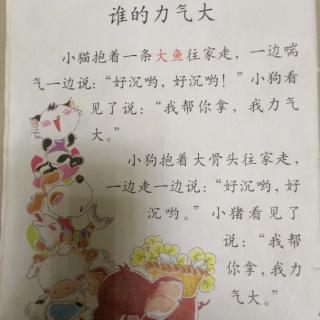 谁的力气大
小猫抱着一条大鱼往家走，一边喘
气一边说：“好沉哟，好沉哟！”小狗看
见了说：“我帮你拿，我力气
大。”
小狗抱着大骨头往家走，
一边走一边说：“好沉哟，好
沉哟。”小猪看见了
说：“我帮
你拿，我力
气大。”